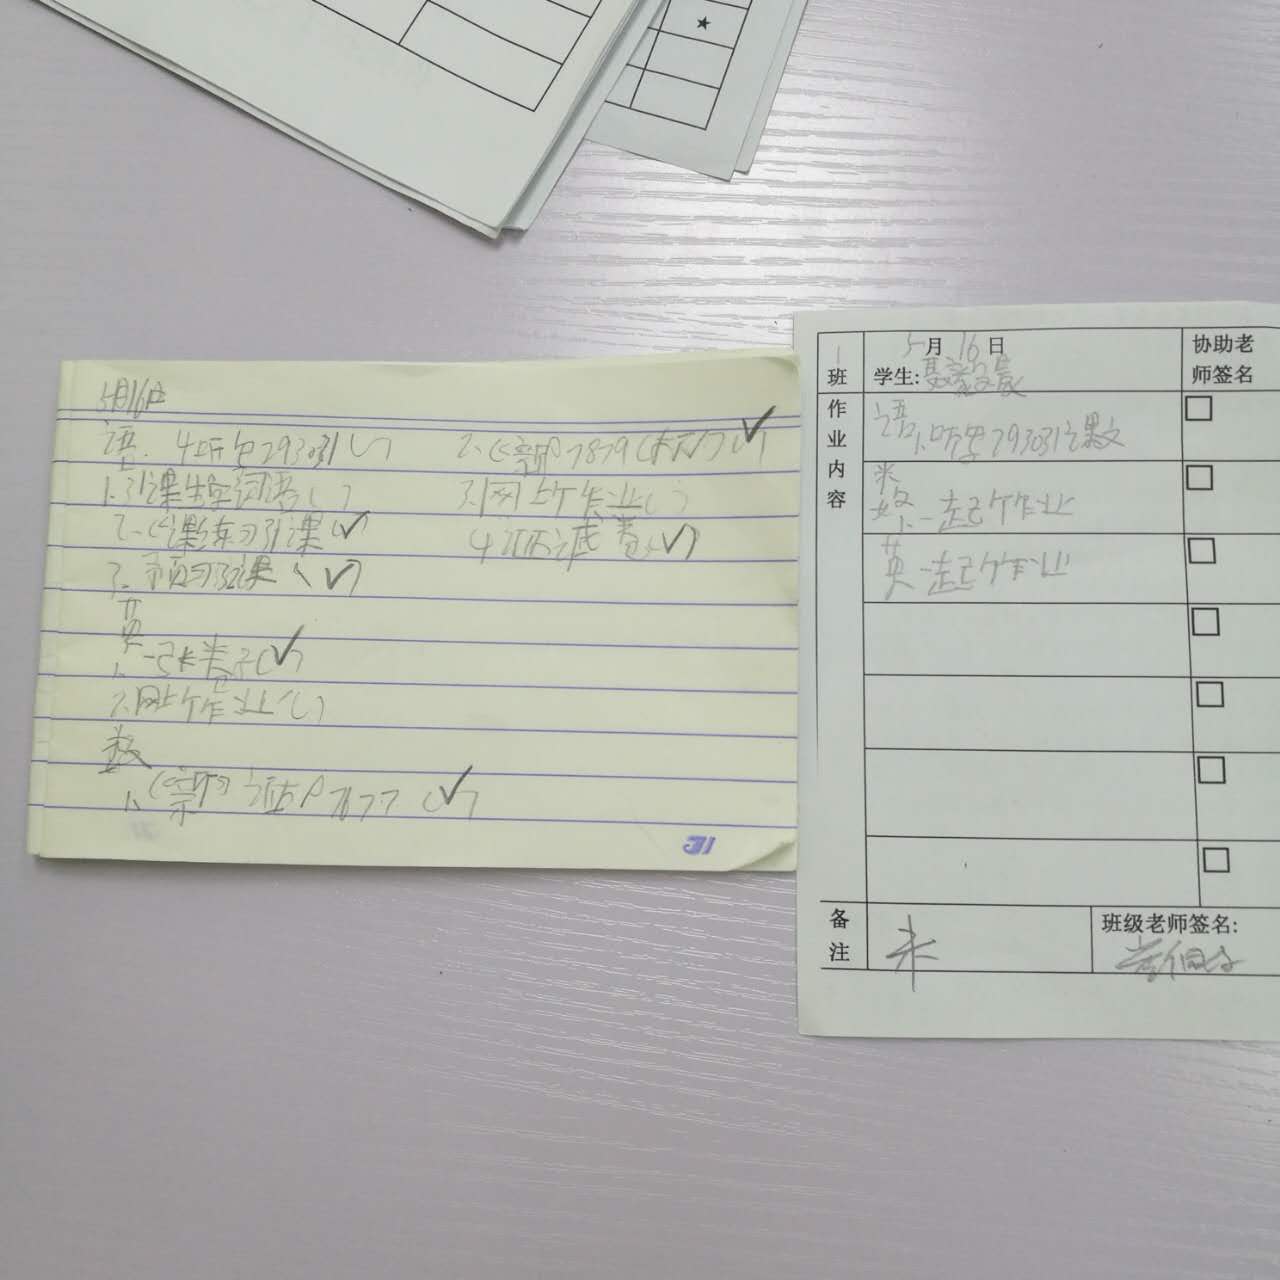 ★
5月16日
语. 4.听写293031( )
1.31课生字词语( )
2.《课练习》31课(✓)
3.预习32课(✓)
英
1. 卷子(✓)
2.网上作业( )
数
1.《新》P7677(✓)
2.《新》P7879(✓)
3.网上作业( )
4. 卷(✓)
一班
5月16日
学生:
协助老师签名
作业内容
语 1.听写293031课文
数 1.一起作业
英 一起作业
备注
未
班级老师签名: